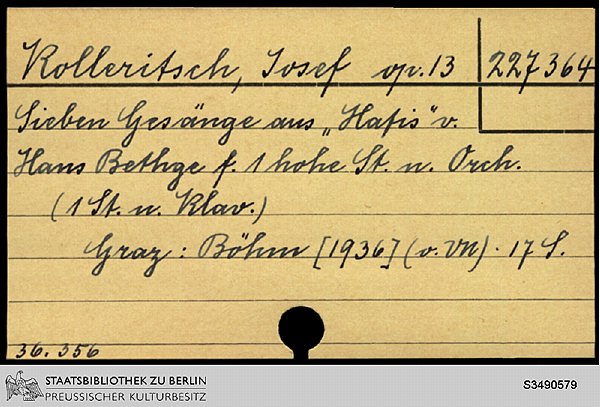 Kolleritsch, Josef op. 13 227364
Sieben Gesänge aus „Hafis" v.
Hans Bethge f. 1 hohe St. u. Orch.
(1 St. u. Klav.)
Graz: Böhm [1936] (o. VN). 17 S.
36.356
STAATSBIBLIOTHEK ZU BERLIN
PREUSSISCHER KULTURBESITZ
S3490579